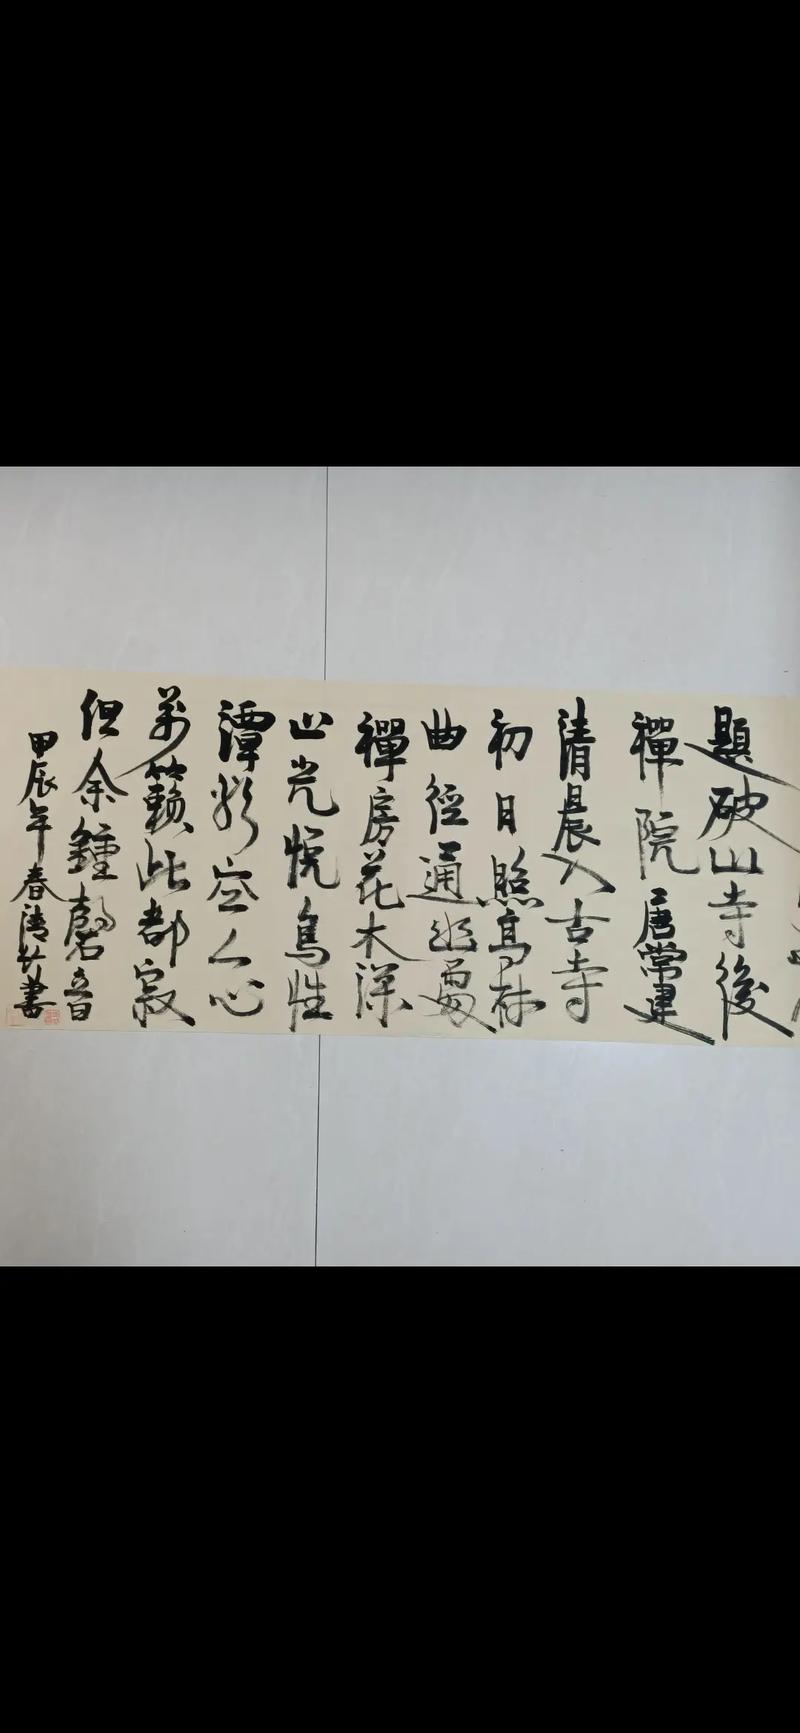 題破山寺後
禪院 唐常建
清晨入古寺
初日照高林
曲徑通幽處
禪房花木深
山光悅鳥性
潭影空人心
萬籟此都寂
但余鐘磬音
甲辰年春清竹書